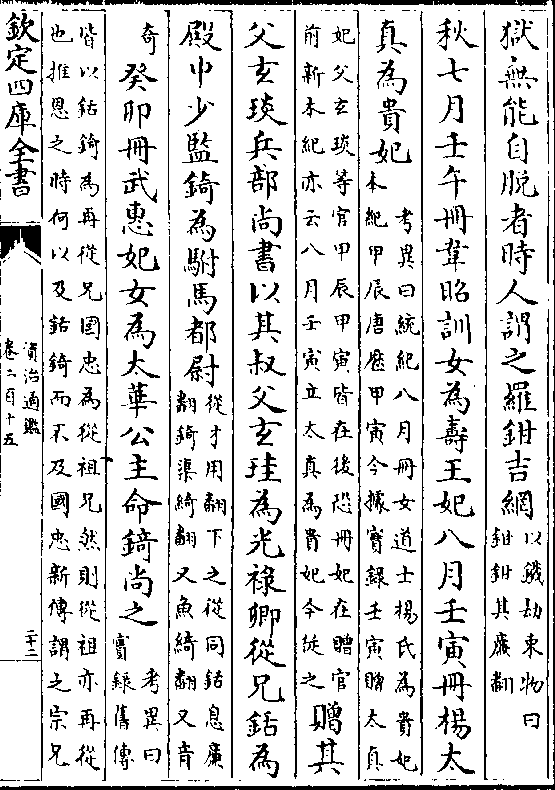 獄無能自脫者時人謂之羅鉗吉網以鐵劫束物曰
鉗鉗其廉翻
秋七月壬午冊韋昭訓女為壽王妃八月壬寅冊楊太
真為貴妃考異曰統紀八月冊女道士楊氏為貴妃
本紀甲辰唐歷甲寅今據實錄壬寅贈太真
妃父玄琰等官甲辰甲寅皆在後恐冊妃在贈官
前新本紀亦云八月壬寅立太真為貴妃今從之贈其
父玄琰兵部尚書以其叔父玄珪為光禄卿從兄銛為
殿中少監錡為駙馬都尉從才用翻下之從同銛息廉
翻錡渠綺翻又魚綺翻又音
奇癸卯冊武惠妃女為太華公主命錡尚之考異曰
實録舊傳
皆以銛錡為再從兄國忠為從祖兄然則從祖亦再從
也推恩之時何以及銛錡而不及國忠新傳謂之宗兄
欽定四庫全書
資治通鑑
卷二百十五
二十二